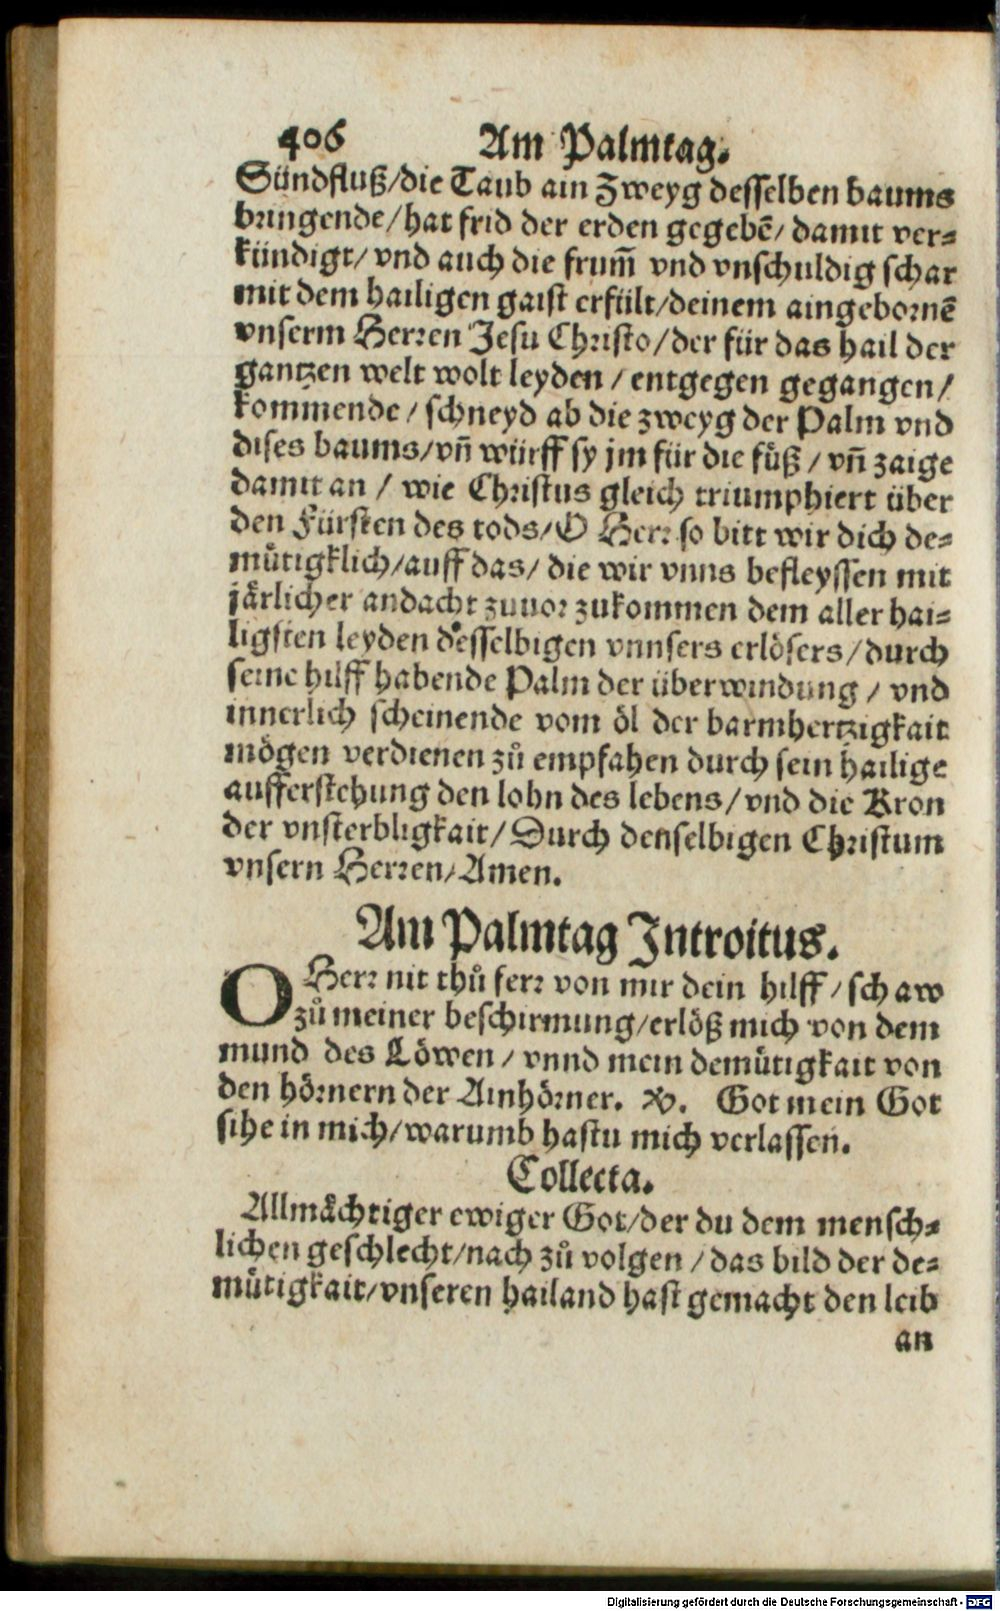 406 Am Palmtag.
Sündfluß/die Taub ain Zweyg desselben baums
bringende/hat frid der erden gegebẽ/ damit ver⸗
kündigt/ vnd auch die frum̃ vnd vnschuldig schar
mit dem hailigen gaist erfült/deinem aingebornẽ
vnserm Herren Jesu Christo/der für das hail der
gantzen welt wolt leyden / entgegen gegangen/
kommende/ schneyd ab die zweyg der Palm vnd
dises baums/vñ würff sy jm für die fuͤß / vñ zaige
damit an / wie Christus gleich triumphiert über
den Fürsten des tods/O Herr so bitt wir dich de⸗
muͤtigklich/auff das/ die wir vnns befleyssen mit
jaͤrlicher andacht zuuor zukommen dem aller hai⸗
ligsten leyden desselbigen vnnsers erloͤsers/durch
seine hilff habende Palm der überwindung / vnd
innerlich scheinende vom oͤl der barmhertzigkait
moͤgen verdienen zuͦ empfahen durch sein hailige
aufferstehung den lohn des lebens/vnd die Kron
der vnsterbligkait/ Durch denselbigen Christum
vnsern Herren/Amen.
Am Palmtag Introitus.
O Herr nit thuͦ ferr von mir dein hilff / schaw
zuͦ meiner beschirmung/erloͤß mich von dem
mund des Loͤwen / vnnd mein demuͤtigkait von
den hoͤrnern der Ainhoͤrner. ℣. Got mein Got
sihe in mich/warumb hastu mich verlassen.
Collecta.
Allmaͤchtiger ewiger Got/der du dem mensch⸗
lichen geschlecht/nach zuͦ volgen /das bild der de⸗
muͤtigkait/vnseren hailand hast gemacht den leib
an
Digitalisierung gefördert durch die Deutsche Forschungsgemeinschaft - DFG